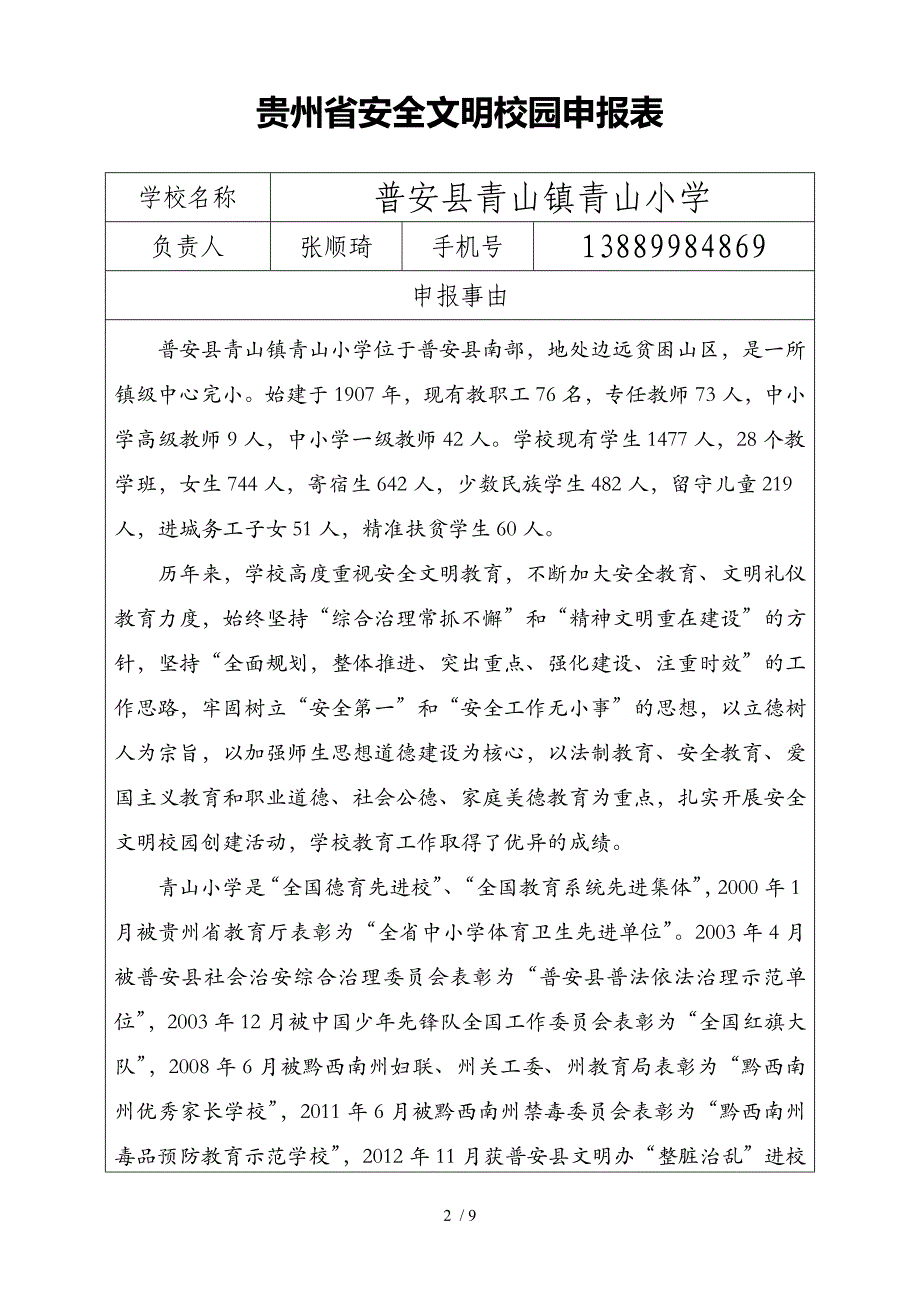 贵州省安全文明校园申报表
学校名称 普安县青山镇青山小学
负责人 张顺琦 手机号 13889984869
申报事由
普安县青山镇青山小学位于普安县南部，地处边远贫困山区，是一所
镇级中心完小。始建于 1907 年，现有教职工 76 名，专任教师 73 人，中小
学高级教师 9 人，中小学一级教师 42 人。学校现有学生 1477 人，28 个教
学班，女生 744 人，寄宿生 642 人，少数民族学生 482 人，留守儿童 219
人，进城务工子女 51 人，精准扶贫学生 60 人。
历年来，学校高度重视安全文明教育，不断加大安全教育、文明礼仪
教育力度，始终坚持“综合治理常抓不懈”和“精神文明重在建设”的方
针，坚持“全面规划，整体推进、突出重点、强化建设、注重时效”的工
作思路，牢固树立“安全第一”和“安全工作无小事”的思想，以立德树
人为宗旨，以加强师生思想道德建设为核心，以法制教育、安全教育、爱
国主义教育和职业道德、社会公德、家庭美德教育为重点，扎实开展安全
文明校园创建活动，学校教育工作取得了优异的成绩。
青山小学是“全国德育先进校”、“全国教育系统先进集体”，2000 年 1
月被贵州省教育厅表彰为“全省中小学体育卫生先进单位”。2003 年 4 月
被普安县社会治安综合治理委员会表彰为“普安县普法依法治理示范单
位”，2003 年 12 月被中国少年先锋队全国工作委员会表彰为“全国红旗大
队”，2008 年 6 月被黔西南州妇联、州关工委、州教育局表彰为“黔西南
州优秀家长学校”，2011 年 6 月被黔西南州禁毒委员会表彰为“黔西南州
毒品预防教育示范学校”，2012 年 11 月获普安县文明办“整脏治乱”进校
2 / 9